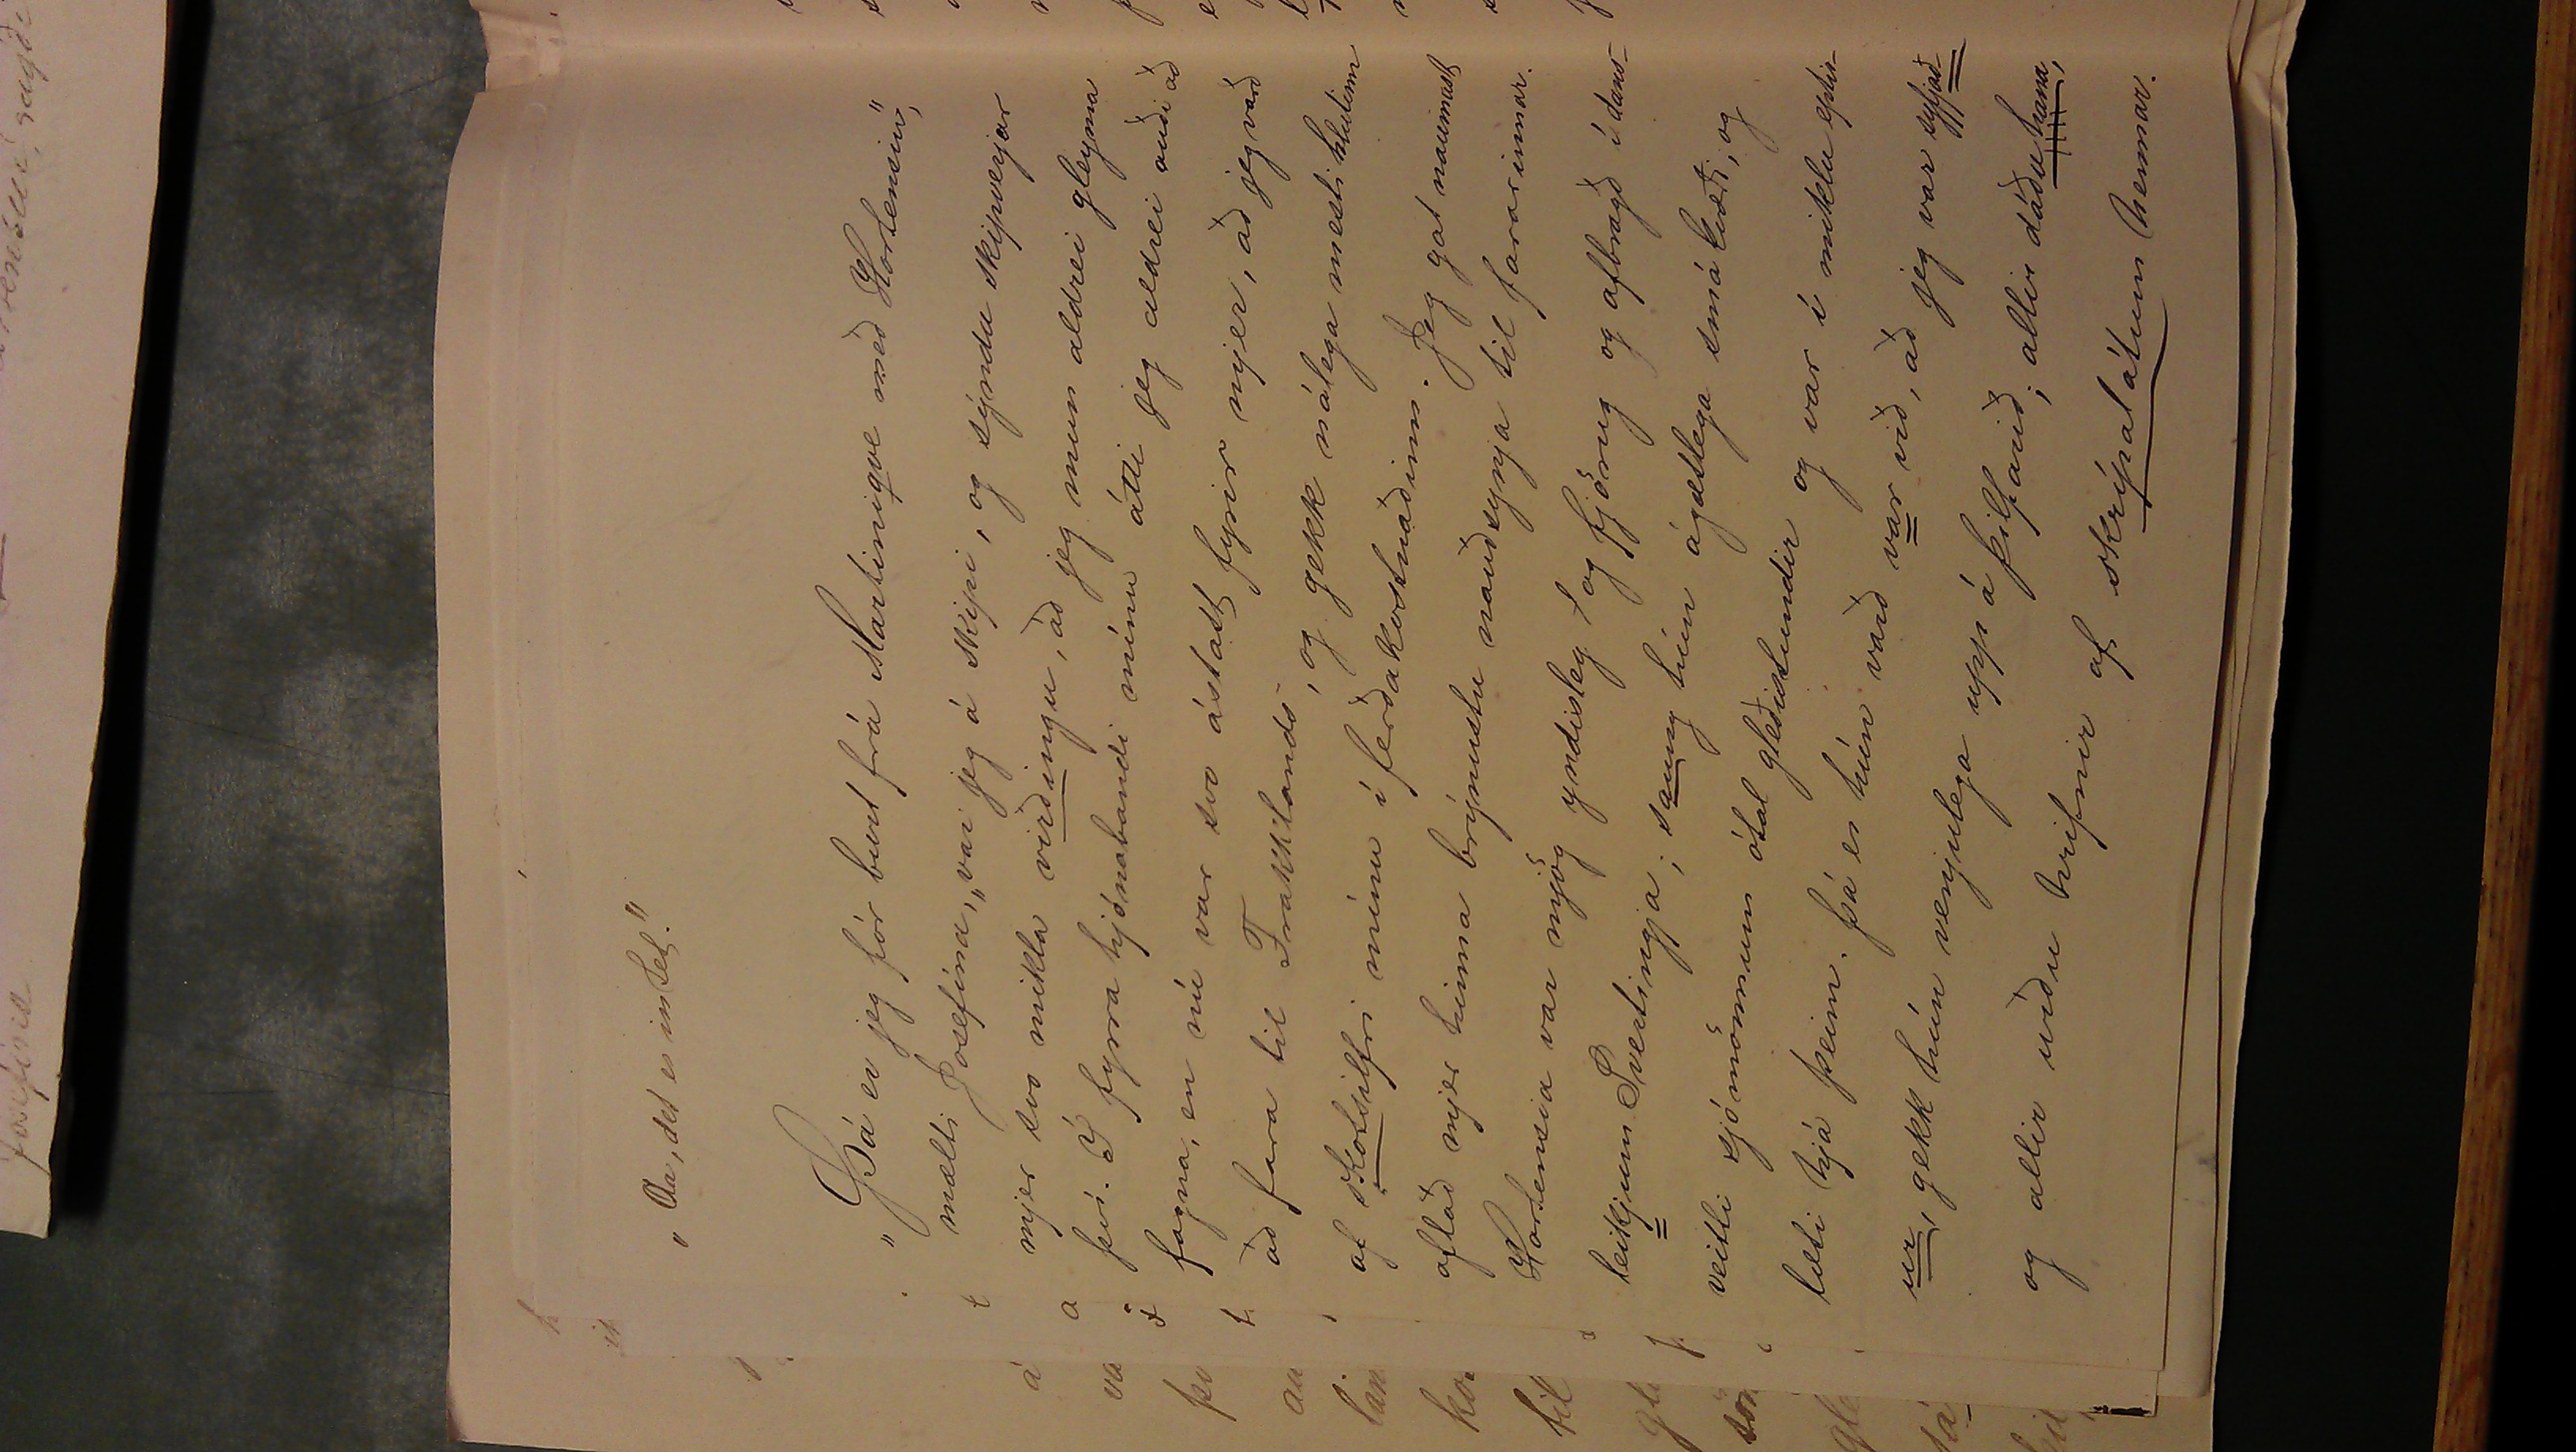 „Aa, det er intet."
„Þá er jeg fór burt frá Martinique með Hortensiu,"
mælti Josefína, „var jeg á skipi, og sýndu skipverjar
mjer svo mikla virðingu, að jeg mun aldrei gleyma
því. Í fyrra hjónabandi mínu átti jeg aldrei auði að
fagna, en nú var svo ástatt fyrir mjer, að jeg varð
að fara til Frakklands, og gekk nálega mesti hlutinn
af skotsilfri mínu í ferðakostnaðinn. Jeg gat naumast
aflað mjer hinna brýnustu nauðsynja til fararinnar.
Hortensia var mjög yndisleg og fjörug og afbragð í dans-
leikjum Svertingja; saung hún ágætlega smá kvæði, og
veitti sjómönnum ótal gleðistundir og var í miklu eptir-
læti hjá þeim. Þá er hún varð var við, að jeg var syfjað-
ur, gekk hún venjulega upp á þilfarið; allir dáðu hana,
og allir urðu hrifnir af skrípalátum hennar.